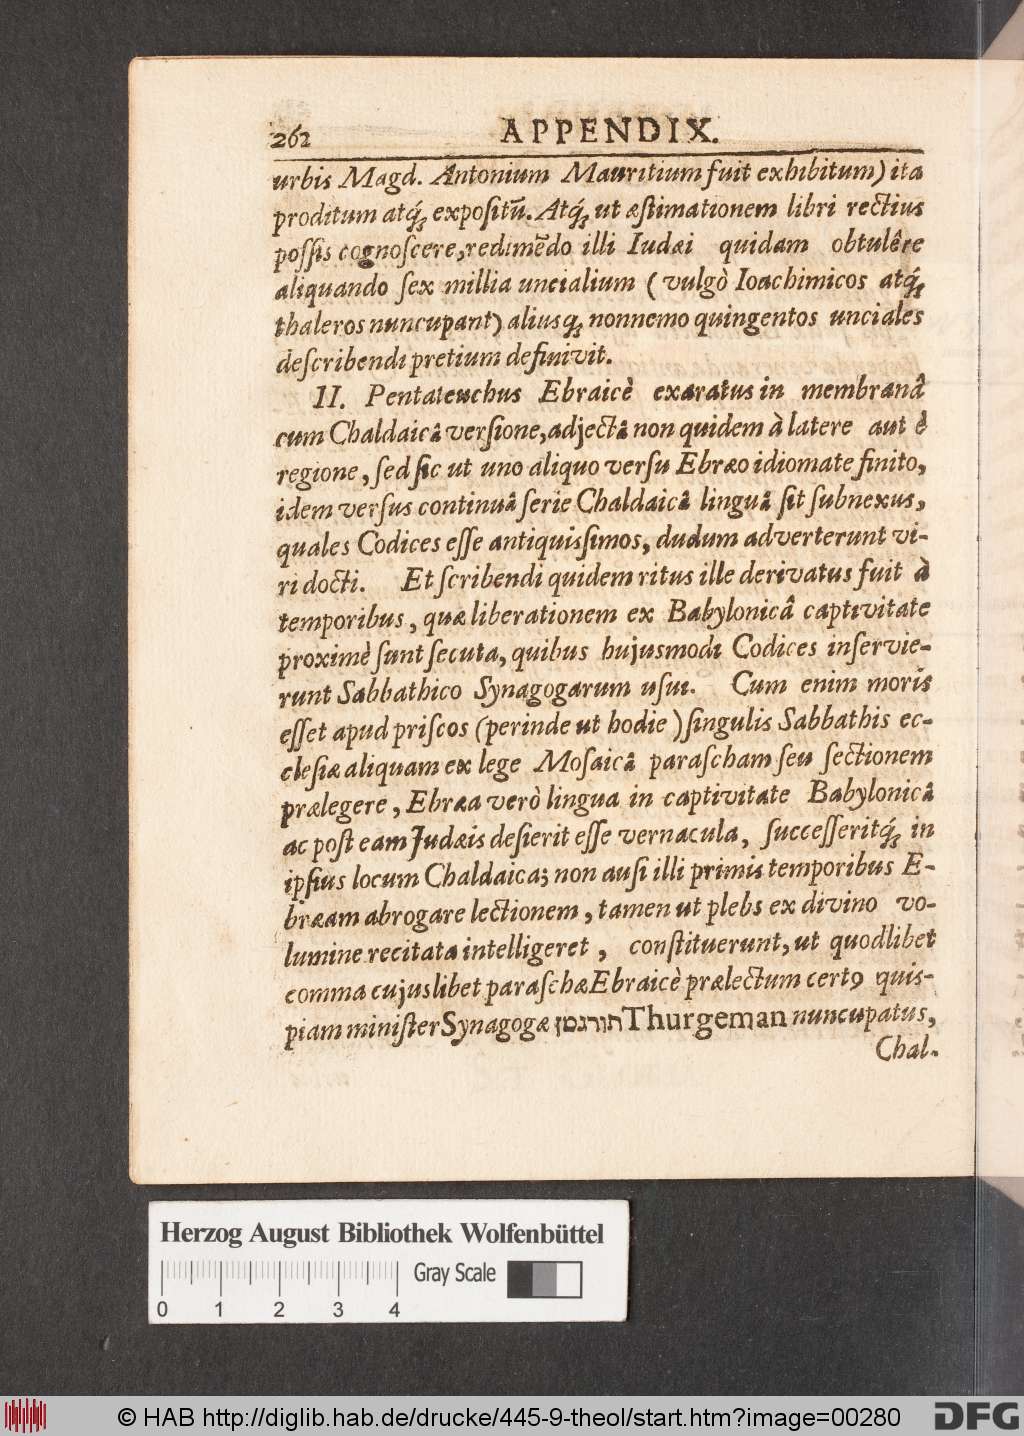 262 APPENDIX.
urbis Magd. Antonium Mauritium fuit exhibitum) ita
proditum atq́ꝫ expositū. Atq́ꝫ ut æstimationem libri rectius
possis cognoscere, redimēdo illi Iudæi quidam obtulêre
aliquando sex millia uncialium (vulgò Ioachimicos atq́ꝫ
thaleros nuncupant) aliusqꝫ nonnemo quingentos unciales
describendi pretium definivit.
II. Pentateuchus Ebraicè exaratus in membranâ
cum Chaldaicâ versione, adjectâ non quidem à latere aut è
regione, sed sic ut uno aliquo versu Ebræo idiomate finito,
idem versus continuâ serie Chaldaicâ linguâ sit subnexus,
quales Codices esse antiquissimos, dudum adverterunt vi-
ri docti. Et scribendi quidem ritus ille derivatus fuit à
temporibus, quæ liberationem ex Babylonicâ captivitate
proximè sunt secuta, quibus hujusmodi Codices inservie-
runt Sabbathico Synagogarum usui. Cum enim moris
esset apud priscos (perinde ut hodie) singulis Sabbathis ec-
clesiæ aliquam ex lege Mosaicâ parascham seu sectionem
prælegere, Ebræa verò lingua in captivitate Babylonicâ
ac post eam Judæis desierit esse vernacula, successeritq́ꝫ in
ipsius locum Chaldaica; non ausi illi primis temporibus E-
bræam abrogare lectionem, tamen ut plebs ex divino vo-
lumine recitata intelligeret, constituerunt, ut quodlibet
comma cujuslibet paraschæ Ebraicè prælectum certꝰ quis-
piam minister Synagogæ תורגמן Thurgeman nuncupatus,
Chal-
Herzog August Bibliothek Wolfenbüttel
Gray Scale
0 1 2 3 4
© HAB http://diglib.hab.de/drucke/445-9-theol/start.htm?image=00280
DFG